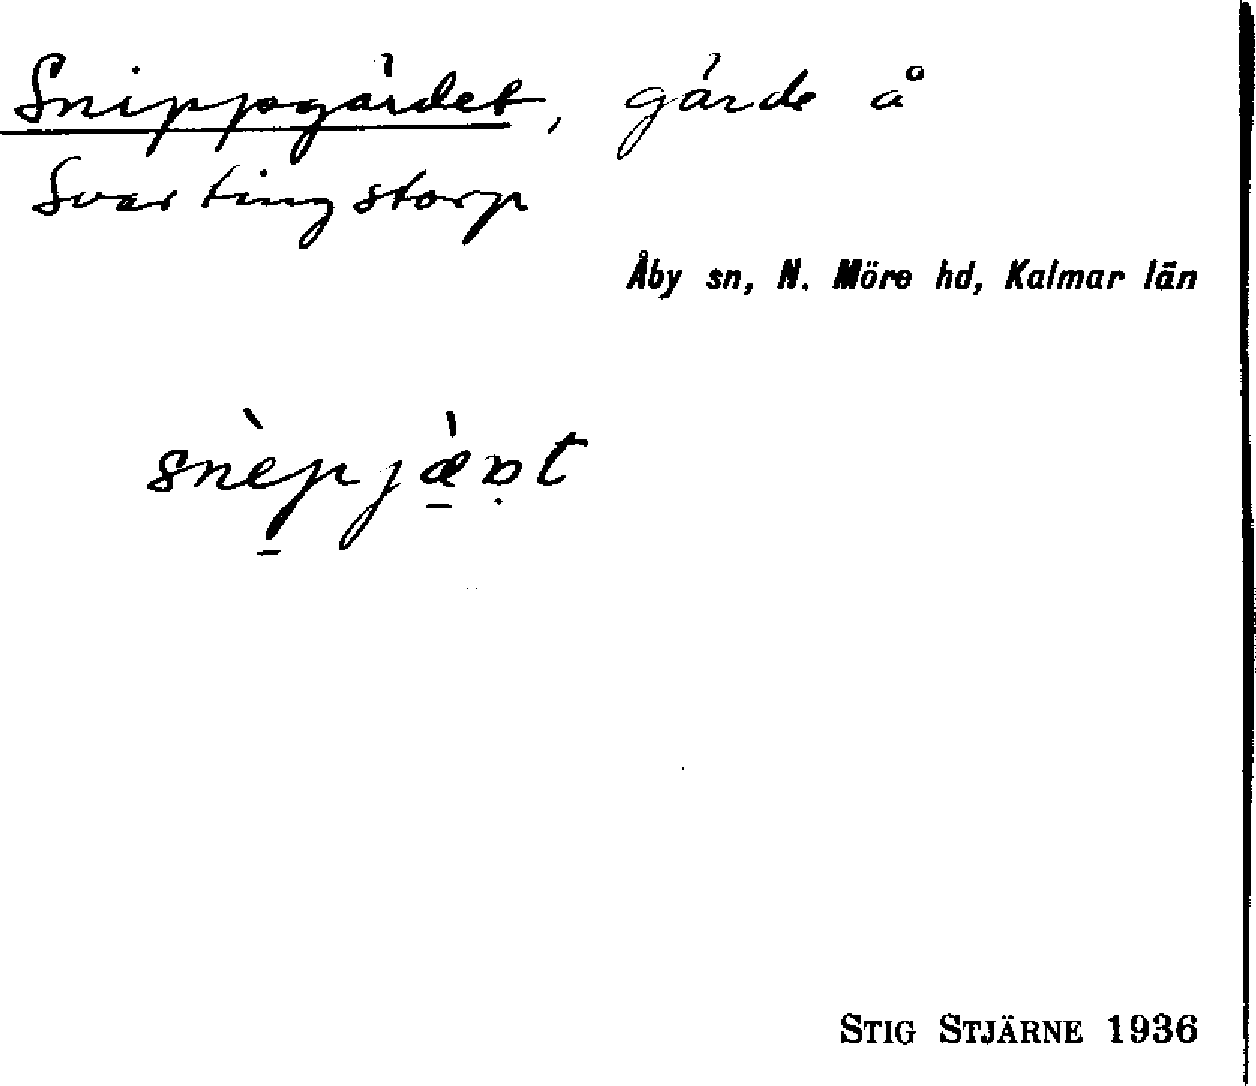 Snippgärdet, gärde å
Svartingstorp
Åby sn, N. Möre hd, Kalmar län
snèpjæ̀ṇt
STIG STJÄRNE 1936